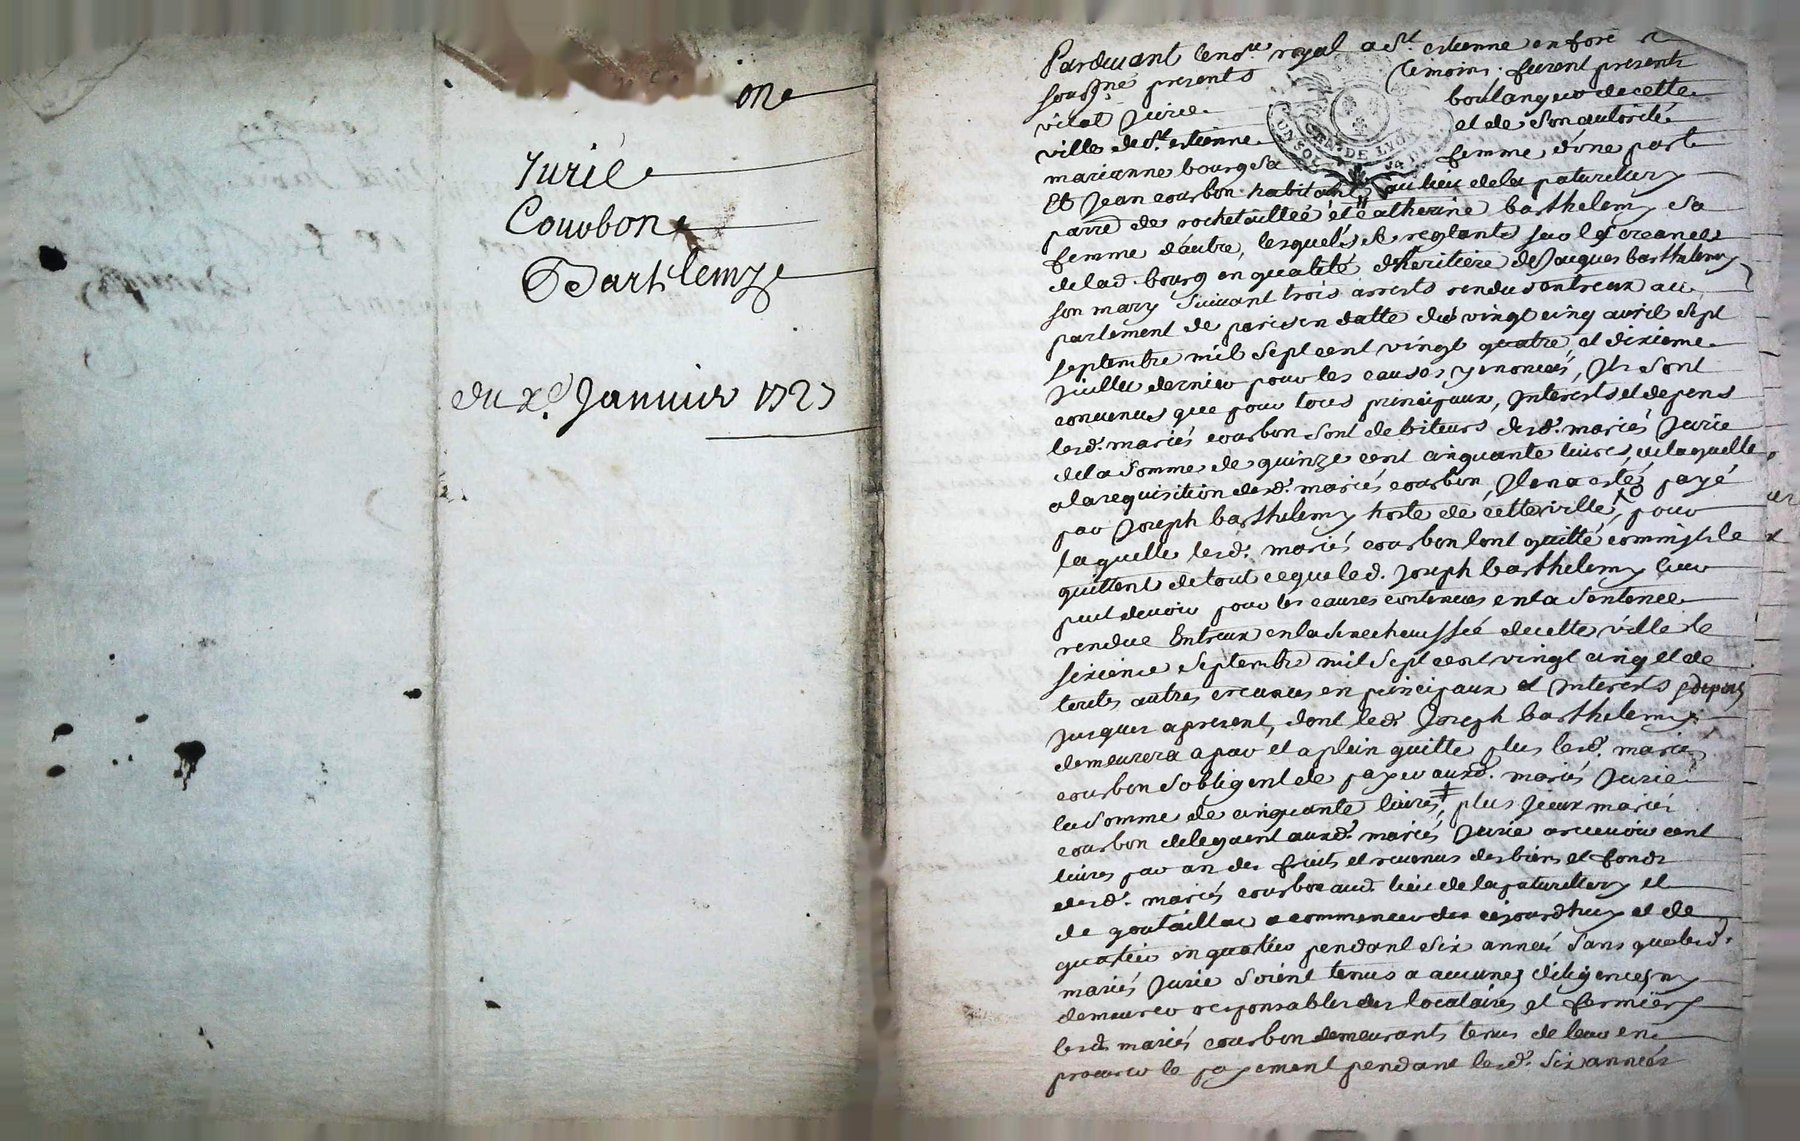 one
Jurie
Courbon
Barthlemy
du xe Janvier 1727
Pardevant le nore royal a St estienne en forè et
soussigné presents temoins furent presents
vitat Jurie boulanger de cette
ville de St estienne et de son autorité
marianne bourg sa femme d'une part
Et Jean courbon habitant au lieu de la paturellery
parre de rochetaillée et catherine barthelemy sa
femme d'autre, lesquels et reglants sur les creances
de lad. bourg en qualité d'heritiere de Jacques barthelemy
son mary suivant trois arrests rendus entreux au
parlement de paris en datte des vingt cinq avril sept
septembre mil sept cent vingt quatre et dixieme
Juillet dernier pour les causes y enoncés, Ils sont
convenus que pour tous principaux, Interests et depens
lesd. mariés courbon sont debiteurs desd. mariés Jurie
de la somme de quinze cent cinquante livres, de laquelle
a la requisition desd. mariés courbon, Il en a esté payé
par Joseph barthelemy hoste de cette ville, pour
laquelle lesd. mariés courbon lont quitté comme Ils le
quittent de tout ce que led. Joseph barthelemy leur
peut devoir pour les causes contenues en la sentence
rendue Entreux en la senechaussée de cette ville le
sixieme septembre mil sept cent vingt cinq et de
toutes autres creances en principaux et Interests depens
Jusques a present, dont led. Joseph barthelemy
demeurera a par et a plein quitte, plus lesd. mariés
courbon s'obligent de payer auxd. mariés Jurie
la somme de cinquante livres, plus Iceux mariés
courbon deleguent auxd. mariés Jurie a recevoir cent
livres par an des fruits et revenus des biens et fonds
desd. mariés courbon aud. lieu de la paturellery et
de goutaillac a commencer des cejourdhuy et de
quartier en quartier pendant six années sans que lesd.
mariés Jurie soient tenus a aucunes diligences ny
demeurer responsables des locataires et fermiers
lesd. mariés courbon demeurants tenus de leur en
procurer le payement pendant lesd. six années